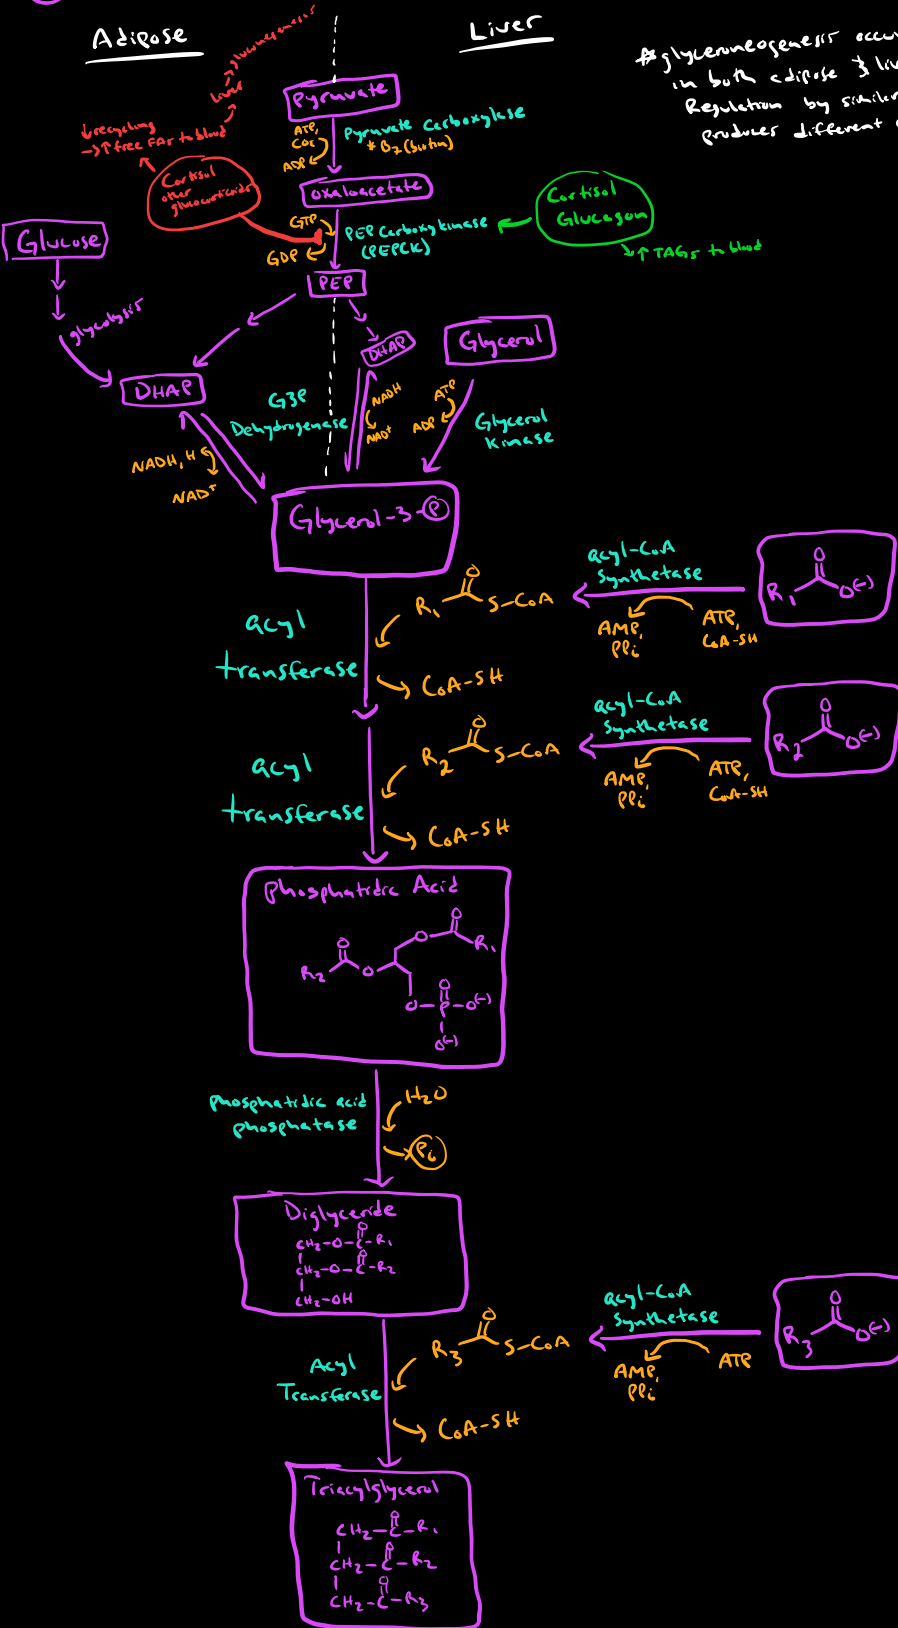 Adipose
Liver
*glyceroneogenesis occu
in both adipose & liv
Regulation by similar
produces different
gluconeogenesis
liver
↓recycling
→↑free FAs to blood
Cortisol
other
glucocorticoids
Pyruvate
ATP,
CO₂
ADP
Pyruvate Carboxylase
*B₇(biotin)
oxaloacetate
GTP
GDP
PEP Carboxykinase
(PEPCK)
Cortisol
Glucagon
↑TAGs to blood
PEP
Glucose
glycolysis
DHAP
DHAP
Glycerol
G3P
Dehydrogenase
NADH
NAD⁺
ATP
ADP
Glycerol
kinase
NADH, H
NAD⁺
Glycerol-3-P
acyl
transferase
R₁ O S-CoA
CoA-SH
acyl-CoA
synthetase
AMP,
PPi
ATP,
CoA-SH
R₁ O O(-)
acyl
transferase
R₂ O S-CoA
CoA-SH
acyl-CoA
synthetase
AMP,
PPi
ATP,
CoA-SH
R₂ O O(-)
Phosphatidic Acid
O O R₁
R₂ O O
O-P-O(-)
O
O(-)
phosphatidic acid
phosphatase
H₂O
Pi
Diglyceride
O
CH₂-O-C-R₁
O
CH₂-O-C-R₂
CH₂-OH
Acyl
Transferase
R₃ O S-CoA
CoA-SH
acyl-CoA
synthetase
AMP,
PPi
ATP
R₃ O O(-)
Triacylglycerol
O
CH₂-C-R₁
O
CH₂-C-R₂
O
CH₂-C-R₃